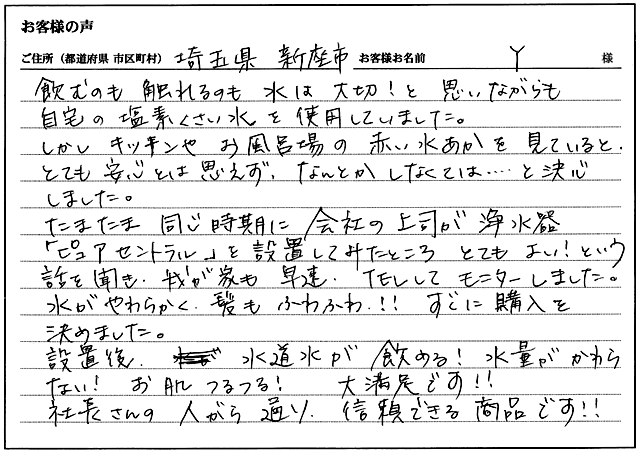 お客様の声
ご住所（都道府県 市区町村） 埼玉県 新座市 お客様お名前 Y 様
飲むのも 触れるのも 水は 大切！と 思いながらも
自宅の 塩素くさい水を 使用していました。
しかし キッチンや お風呂場の 赤い水あかを 見ていると、
とても 安心とは 思えず、なんとか しなくては…… と決心
しました。
たまたま 同じ時期に 会社の上司が 浄水器
「ピュアセントラル」を 設置してみたところ とても よい！という
話を聞き、我が家も 早速、TELして モニターしました。
水がやわらかく、髪も ふわふわ、!! すぐに 購入を
決めました。
設置後、 水道水が 飲める！ 水量が かわら
ない！ お肌 つるつる！ 大満足です!!
社長さんの 人がら通り、信頼できる 商品です!!